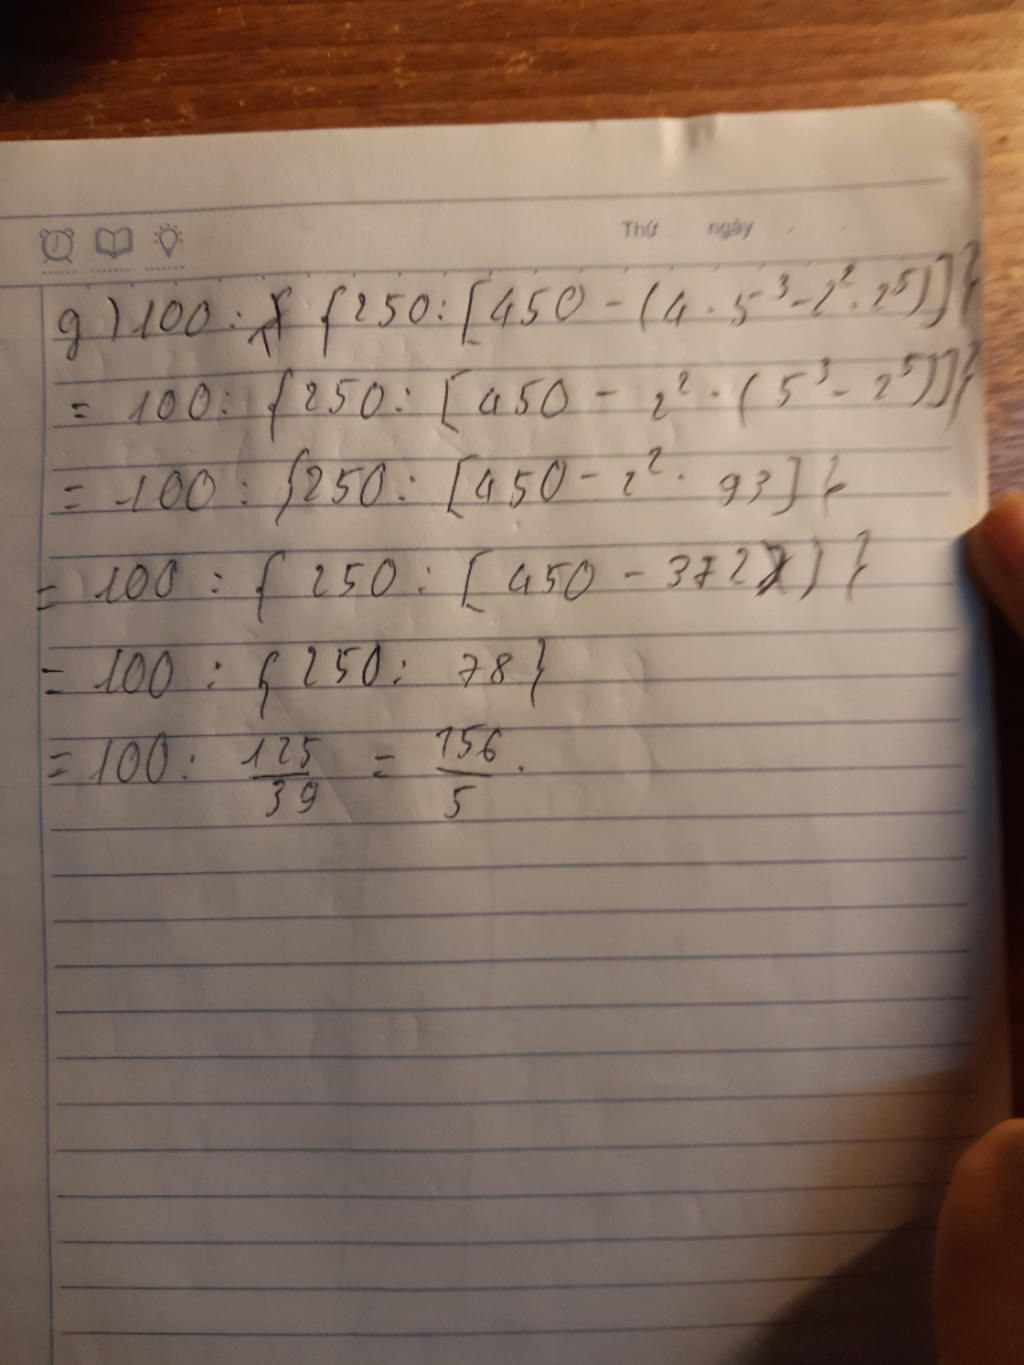 Thứ ngày
g) 100 : { 250 : [450 - (4 . 5³ - 2² . 2⁵)]}
= 100 : {250 : [450 - 2² . (5³ - 2⁵)]}
= 100 : {250 : [450 - 2² . 93]}
= 100 : { 250 : [450 - 372]}
= 100 : { 250 : 78}
= 100 : 125/39 = 156/5 .